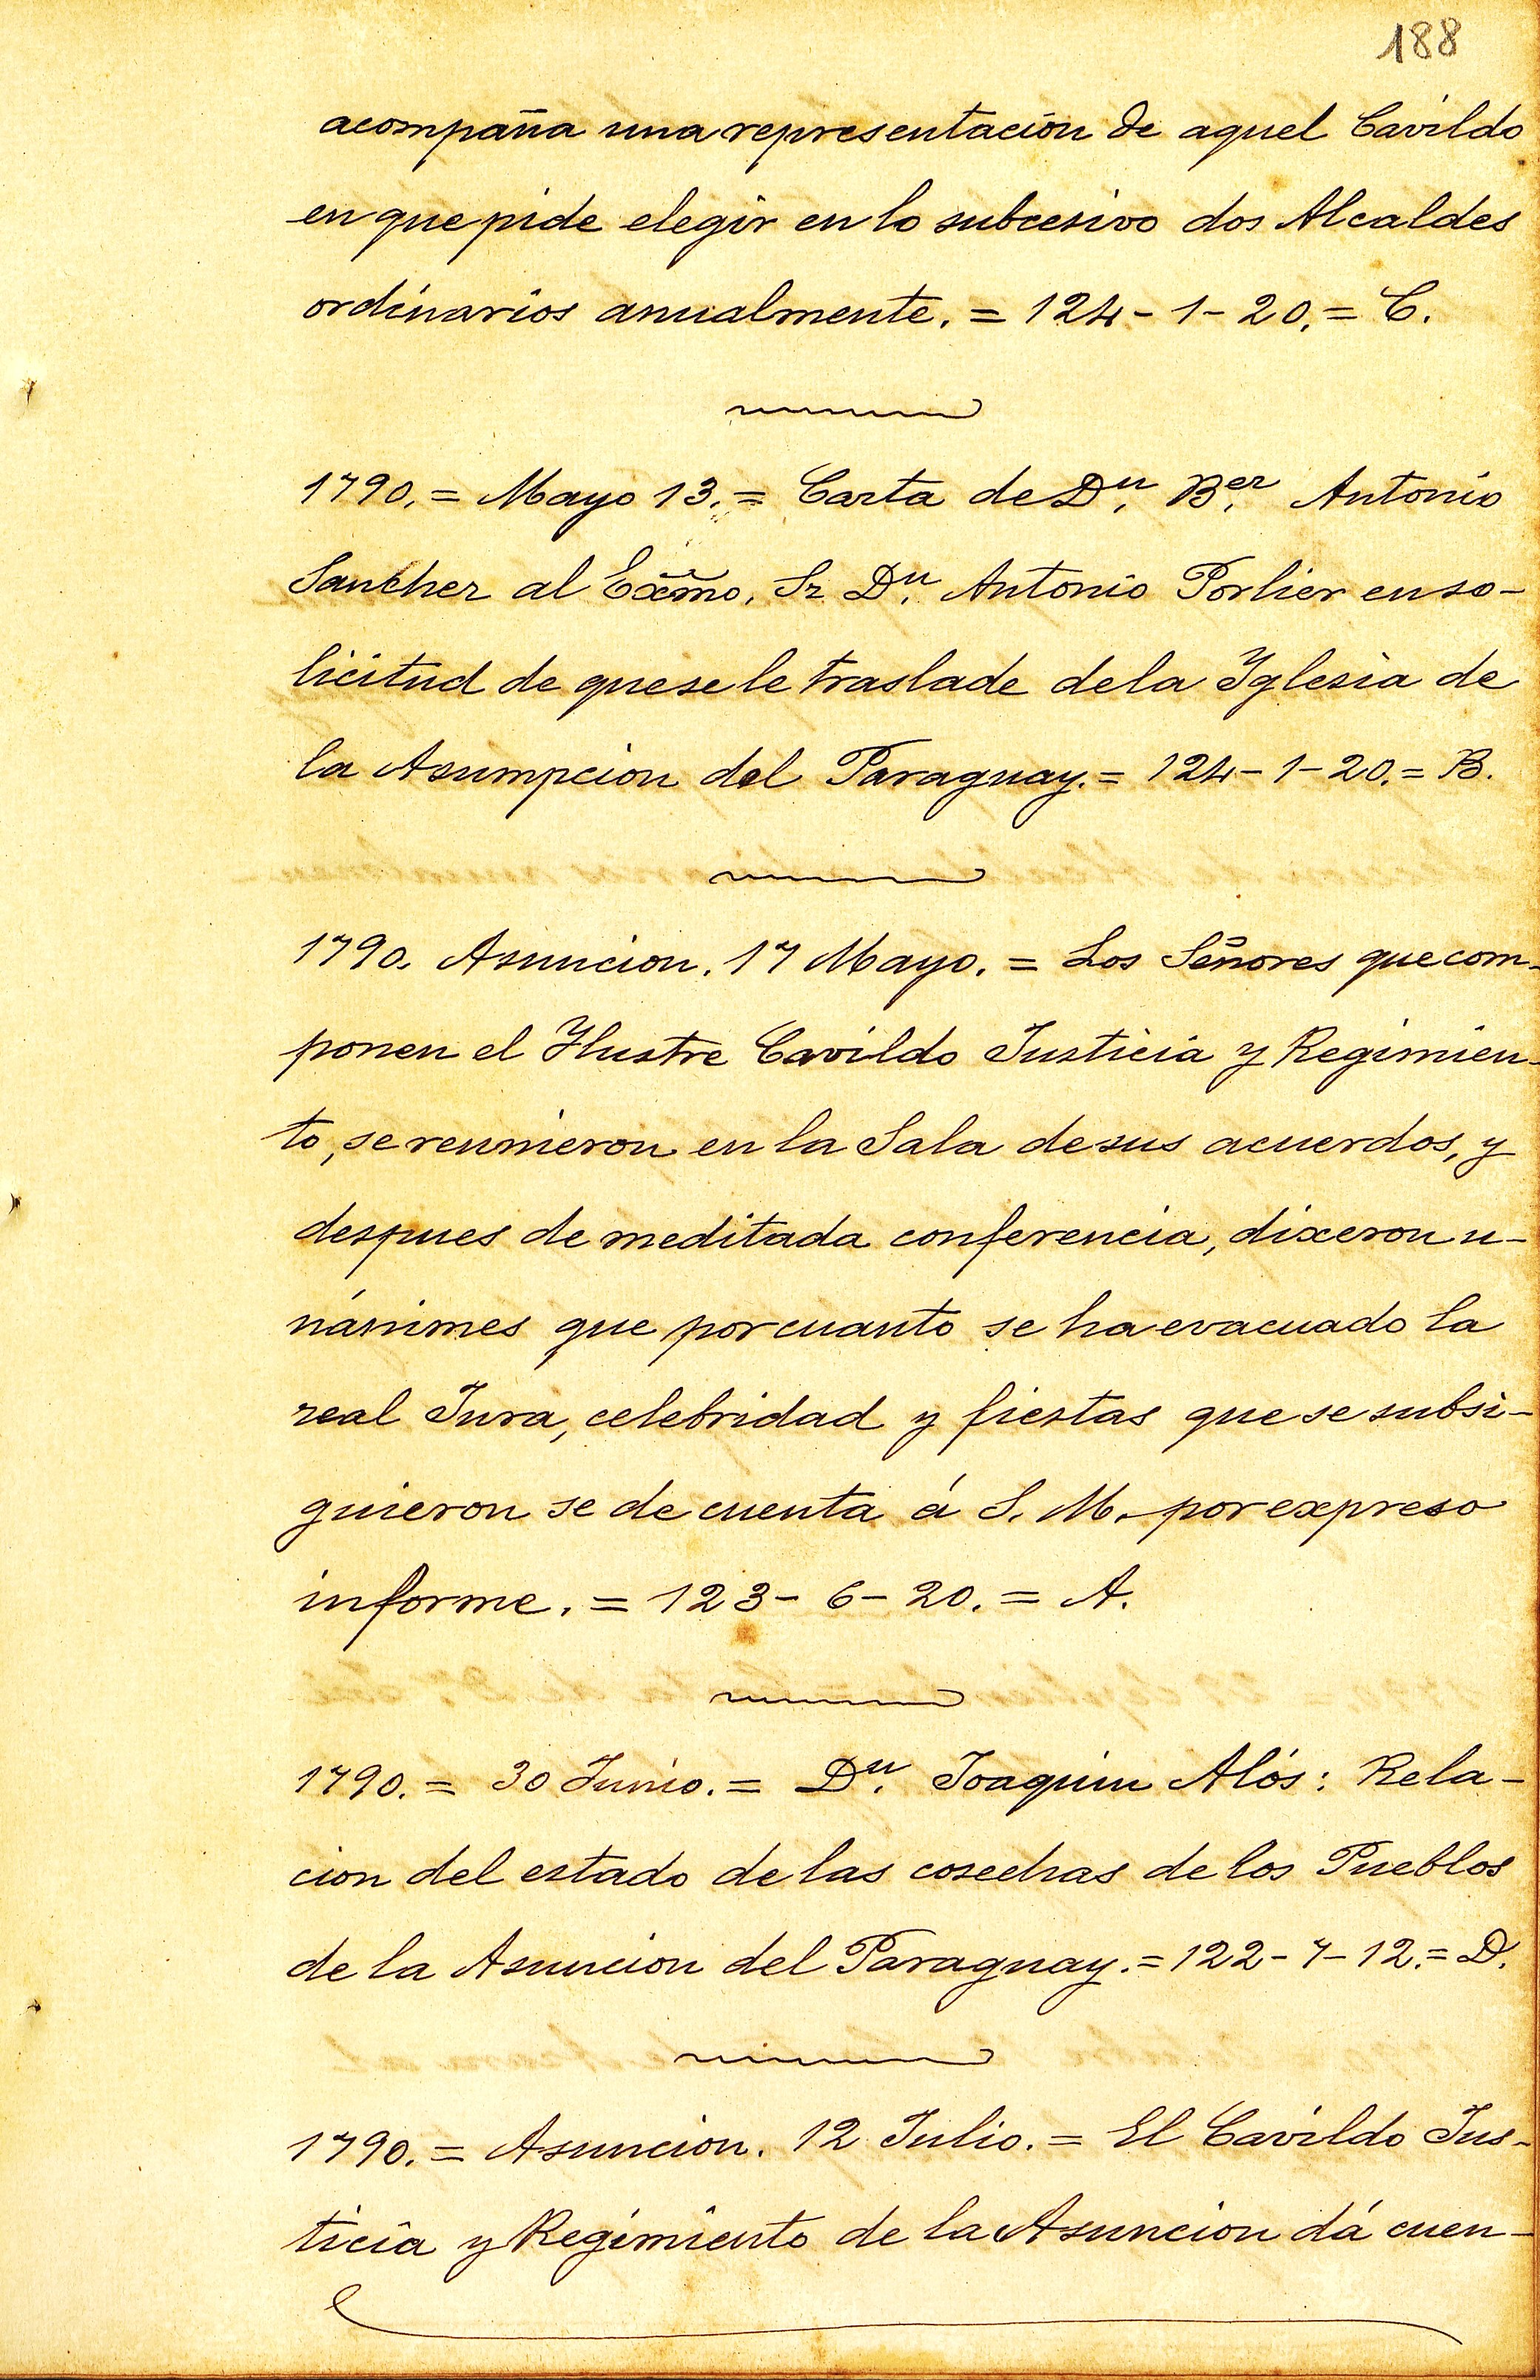 188
acompaña una representación de aquel Cavildo
en que pide elegir en lo subcesivo dos Alcaldes
ordinarios anualmente. = 124-1-20. = C.
1790. = Mayo 13. = Carta de Dn. Ber. Antonio
Sanchez al Exmo. Sr. Dn. Antonio Porlier en so-
licitud de que se le traslade de la Yglesia de
la Asumpcion del Paraguay. = 124-1-20. = B.
1790. Asuncion. 17 Mayo. = Los Señores que com-
ponen el Ylustre Cavildo Justicia y Regimien-
to, se reunieron en la Sala de sus acuerdos, y
despues de meditada conferencia, dixeron u-
nánimes que por cuanto se ha evacuado la
real Jura, celebridad y fiestas que se subsi-
guieron se de cuenta á S. M. por expreso
informe. = 123-6-20. = A.
1790. = 30 Junio. = Dn. Joaquin Alós: Rela-
cion del estado de las cosechas de los Pueblos
de la Asuncion del Paraguay. = 122-7-12. = D.
1790. = Asuncion. 12 Julio. = El Cavildo Jus-
ticia y Regimiento de la Asuncion dá cuen-